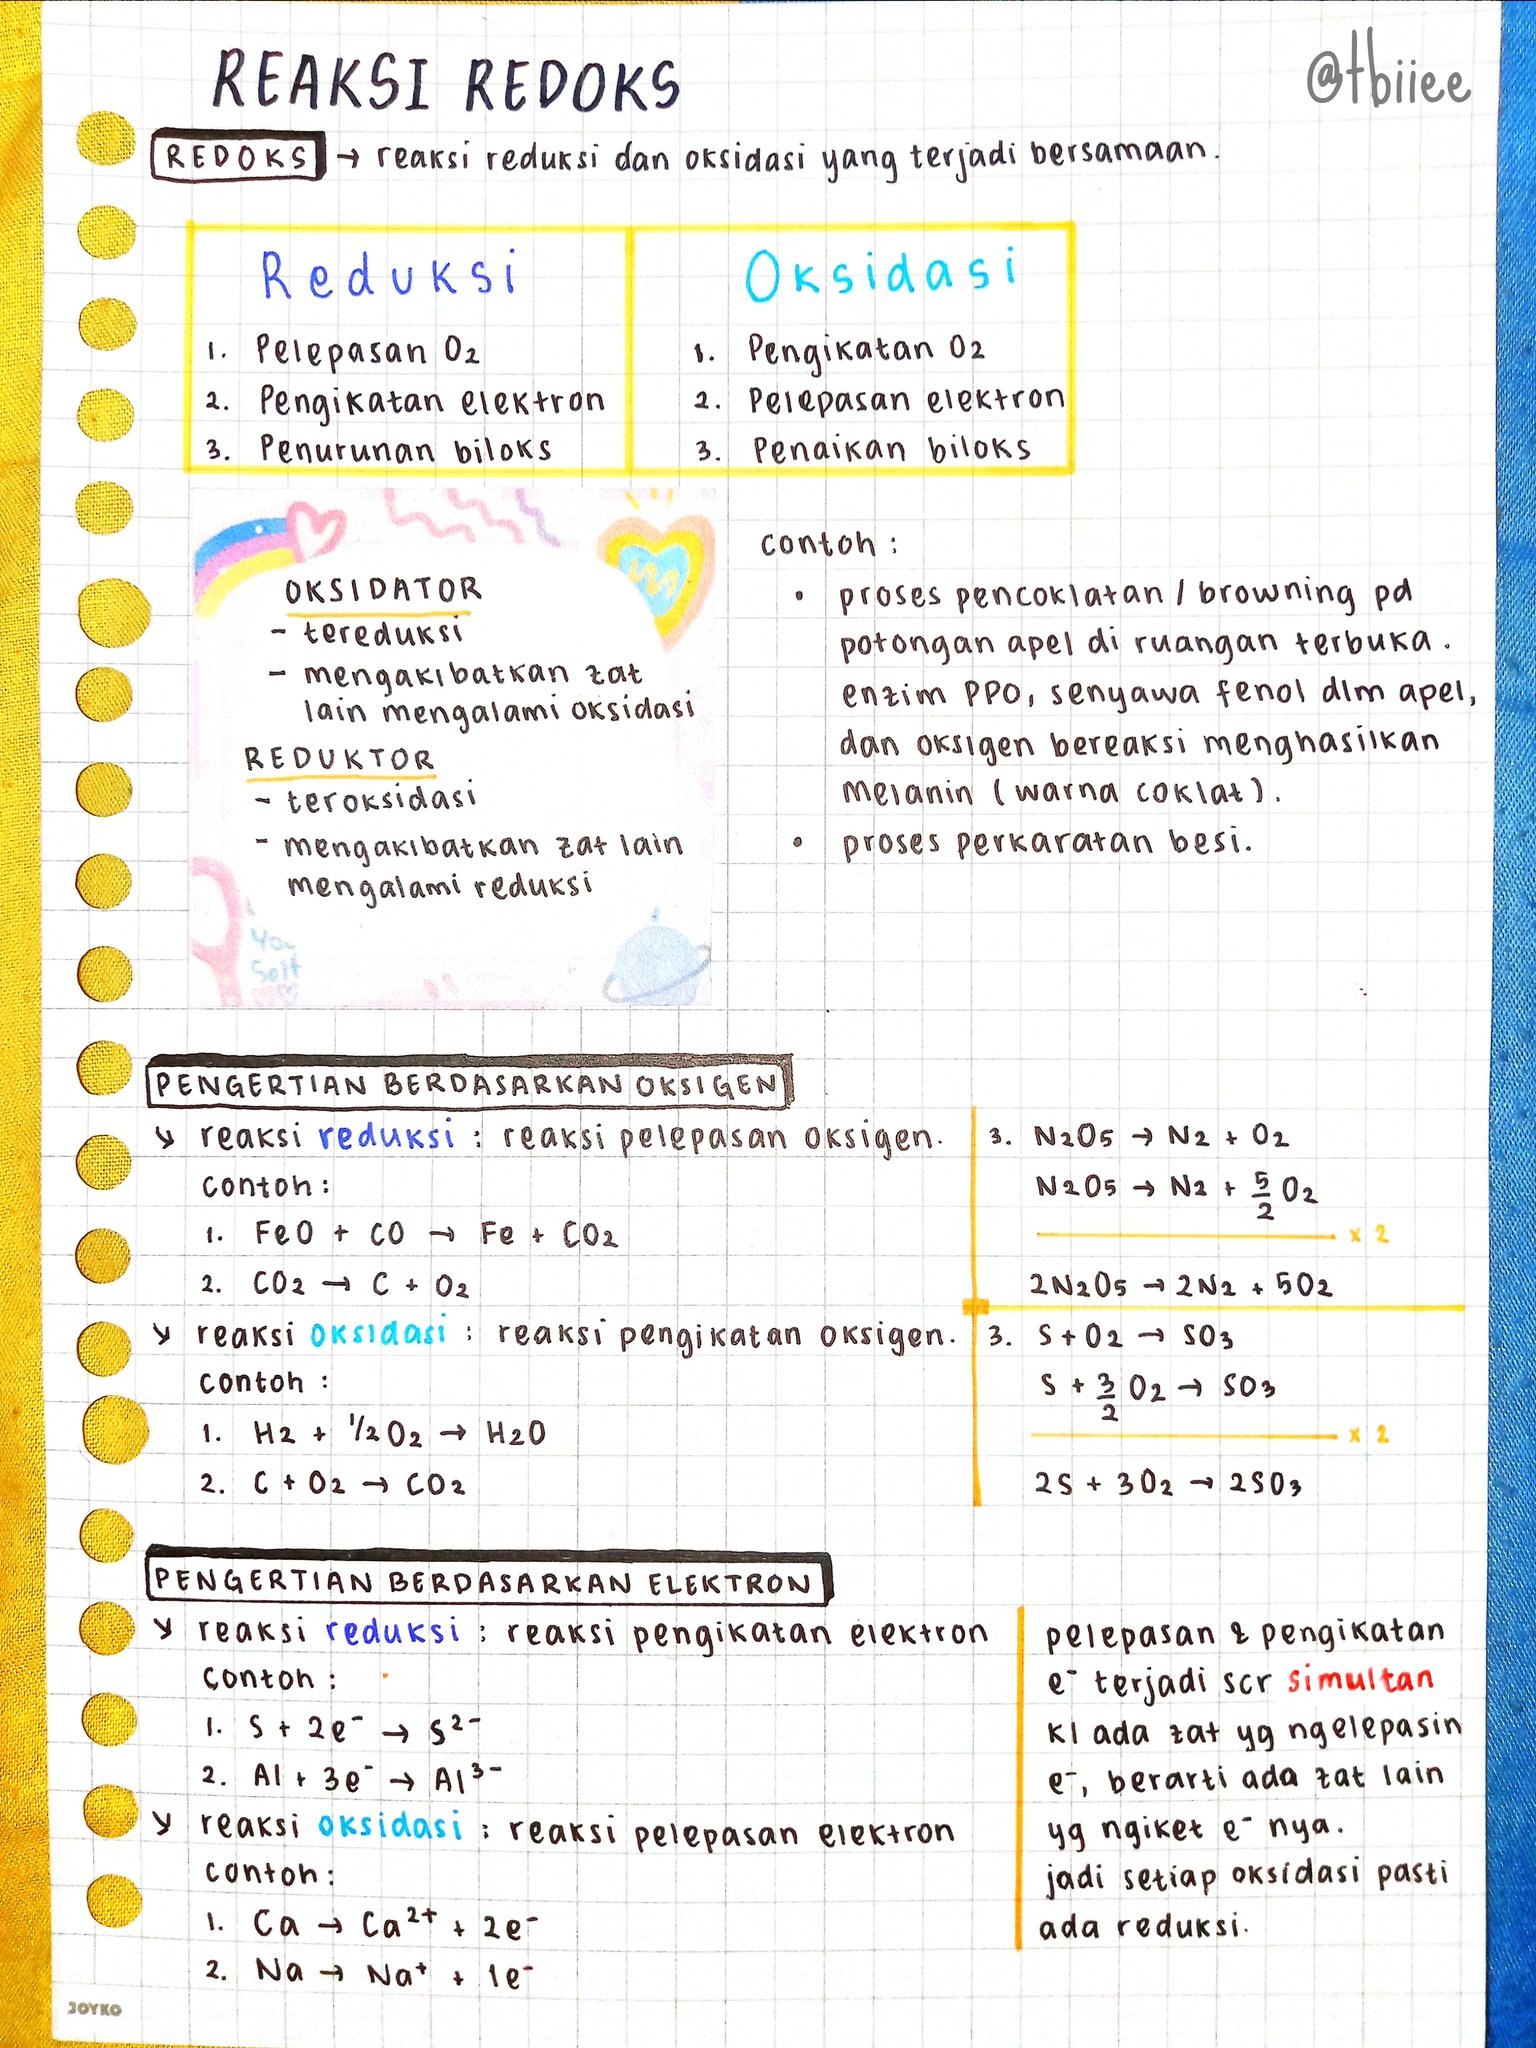 REAKSI REDOKS
@tbiiee
REDOKS → reaksi reduksi dan oksidasi yang terjadi bersamaan.
Reduksi
1. Pelepasan O2
2. Pengikatan elektron
3. Penurunan biloks
Oksidasi
1. Pengikatan O2
2. Pelepasan elektron
3. Penaikan biloks
OKSIDATOR
- tereduksi
- mengakibatkan zat
lain mengalami oksidasi
REDUKTOR
- teroksidasi
- mengakibatkan zat lain
mengalami reduksi
contoh :
• proses pencoklatan / browning pd
potongan apel di ruangan terbuka.
enzim PPO, senyawa fenol dlm apel,
dan oksigen bereaksi menghasilkan
melanin (warna coklat).
• proses perkaratan besi.
PENGERTIAN BERDASARKAN OKSIGEN
↘ reaksi reduksi : reaksi pelepasan oksigen.
contoh :
1. FeO + CO → Fe + CO2
2. CO2 → C + O2
↘ reaksi oksidasi : reaksi pengikatan oksigen.
contoh :
1. H2 + 1/2 O2 → H2O
2. C + O2 → CO2
3. N2O5 → N2 + O2
N2O5 → N2 + 5/2 O2
x 2
2N2O5 → 2N2 + 5O2
3. S + O2 → SO3
S + 3/2 O2 → SO3
x 2
2S + 3O2 → 2SO3
PENGERTIAN BERDASARKAN ELEKTRON
↘ reaksi reduksi : reaksi pengikatan elektron
contoh :
1. S + 2e⁻ → S²⁻
2. Al + 3e⁻ → Al³⁻
↘ reaksi oksidasi : reaksi pelepasan elektron
contoh :
1. Ca → Ca²⁺ + 2e⁻
2. Na → Na⁺ + 1e⁻
pelepasan & pengikatan
e⁻ terjadi scr simultan
kl ada zat yg ngelepasin
e⁻, berarti ada zat lain
yg ngiket e⁻ nya.
jadi setiap oksidasi pasti
ada reduksi.
JOYKO